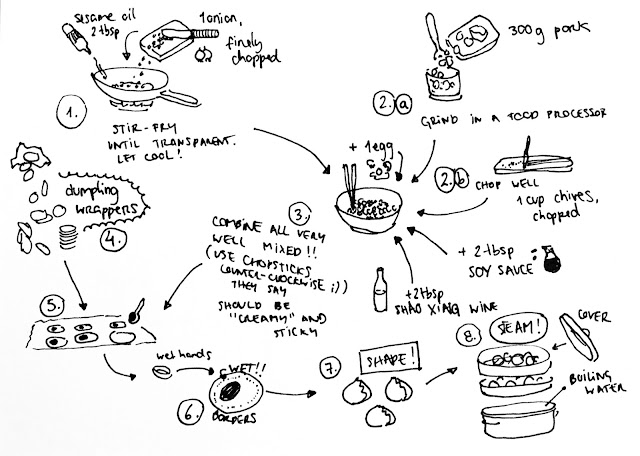 sesame oil
2 tbsp
1 onion,
finely
chopped
1.
STIR-FRY
UNTIL TRANSPARENT.
LET COOL!
300g pork
2. a
GRIND IN A FOOD PROCESSOR
+ 1 egg
2. b
CHOP WELL
1 cup chives,
chopped
+ 2 tbsp
SOY SAUCE
+2 tbsp
SHAO XING WINE
3.
COMBINE ALL VERY
WELL MIXED!!
(USE CHOPSTICKS
COUNTER-CLOCKWISE ;))
THEY SAY
SHOULD BE
"CREAMY" AND
STICKY
dumpling
wrappers
4.
5.
wet hands
WET!!
6.
BORDERS
7.
SHAPE!
8.
STEAM!
COVER
BOILING
WATER